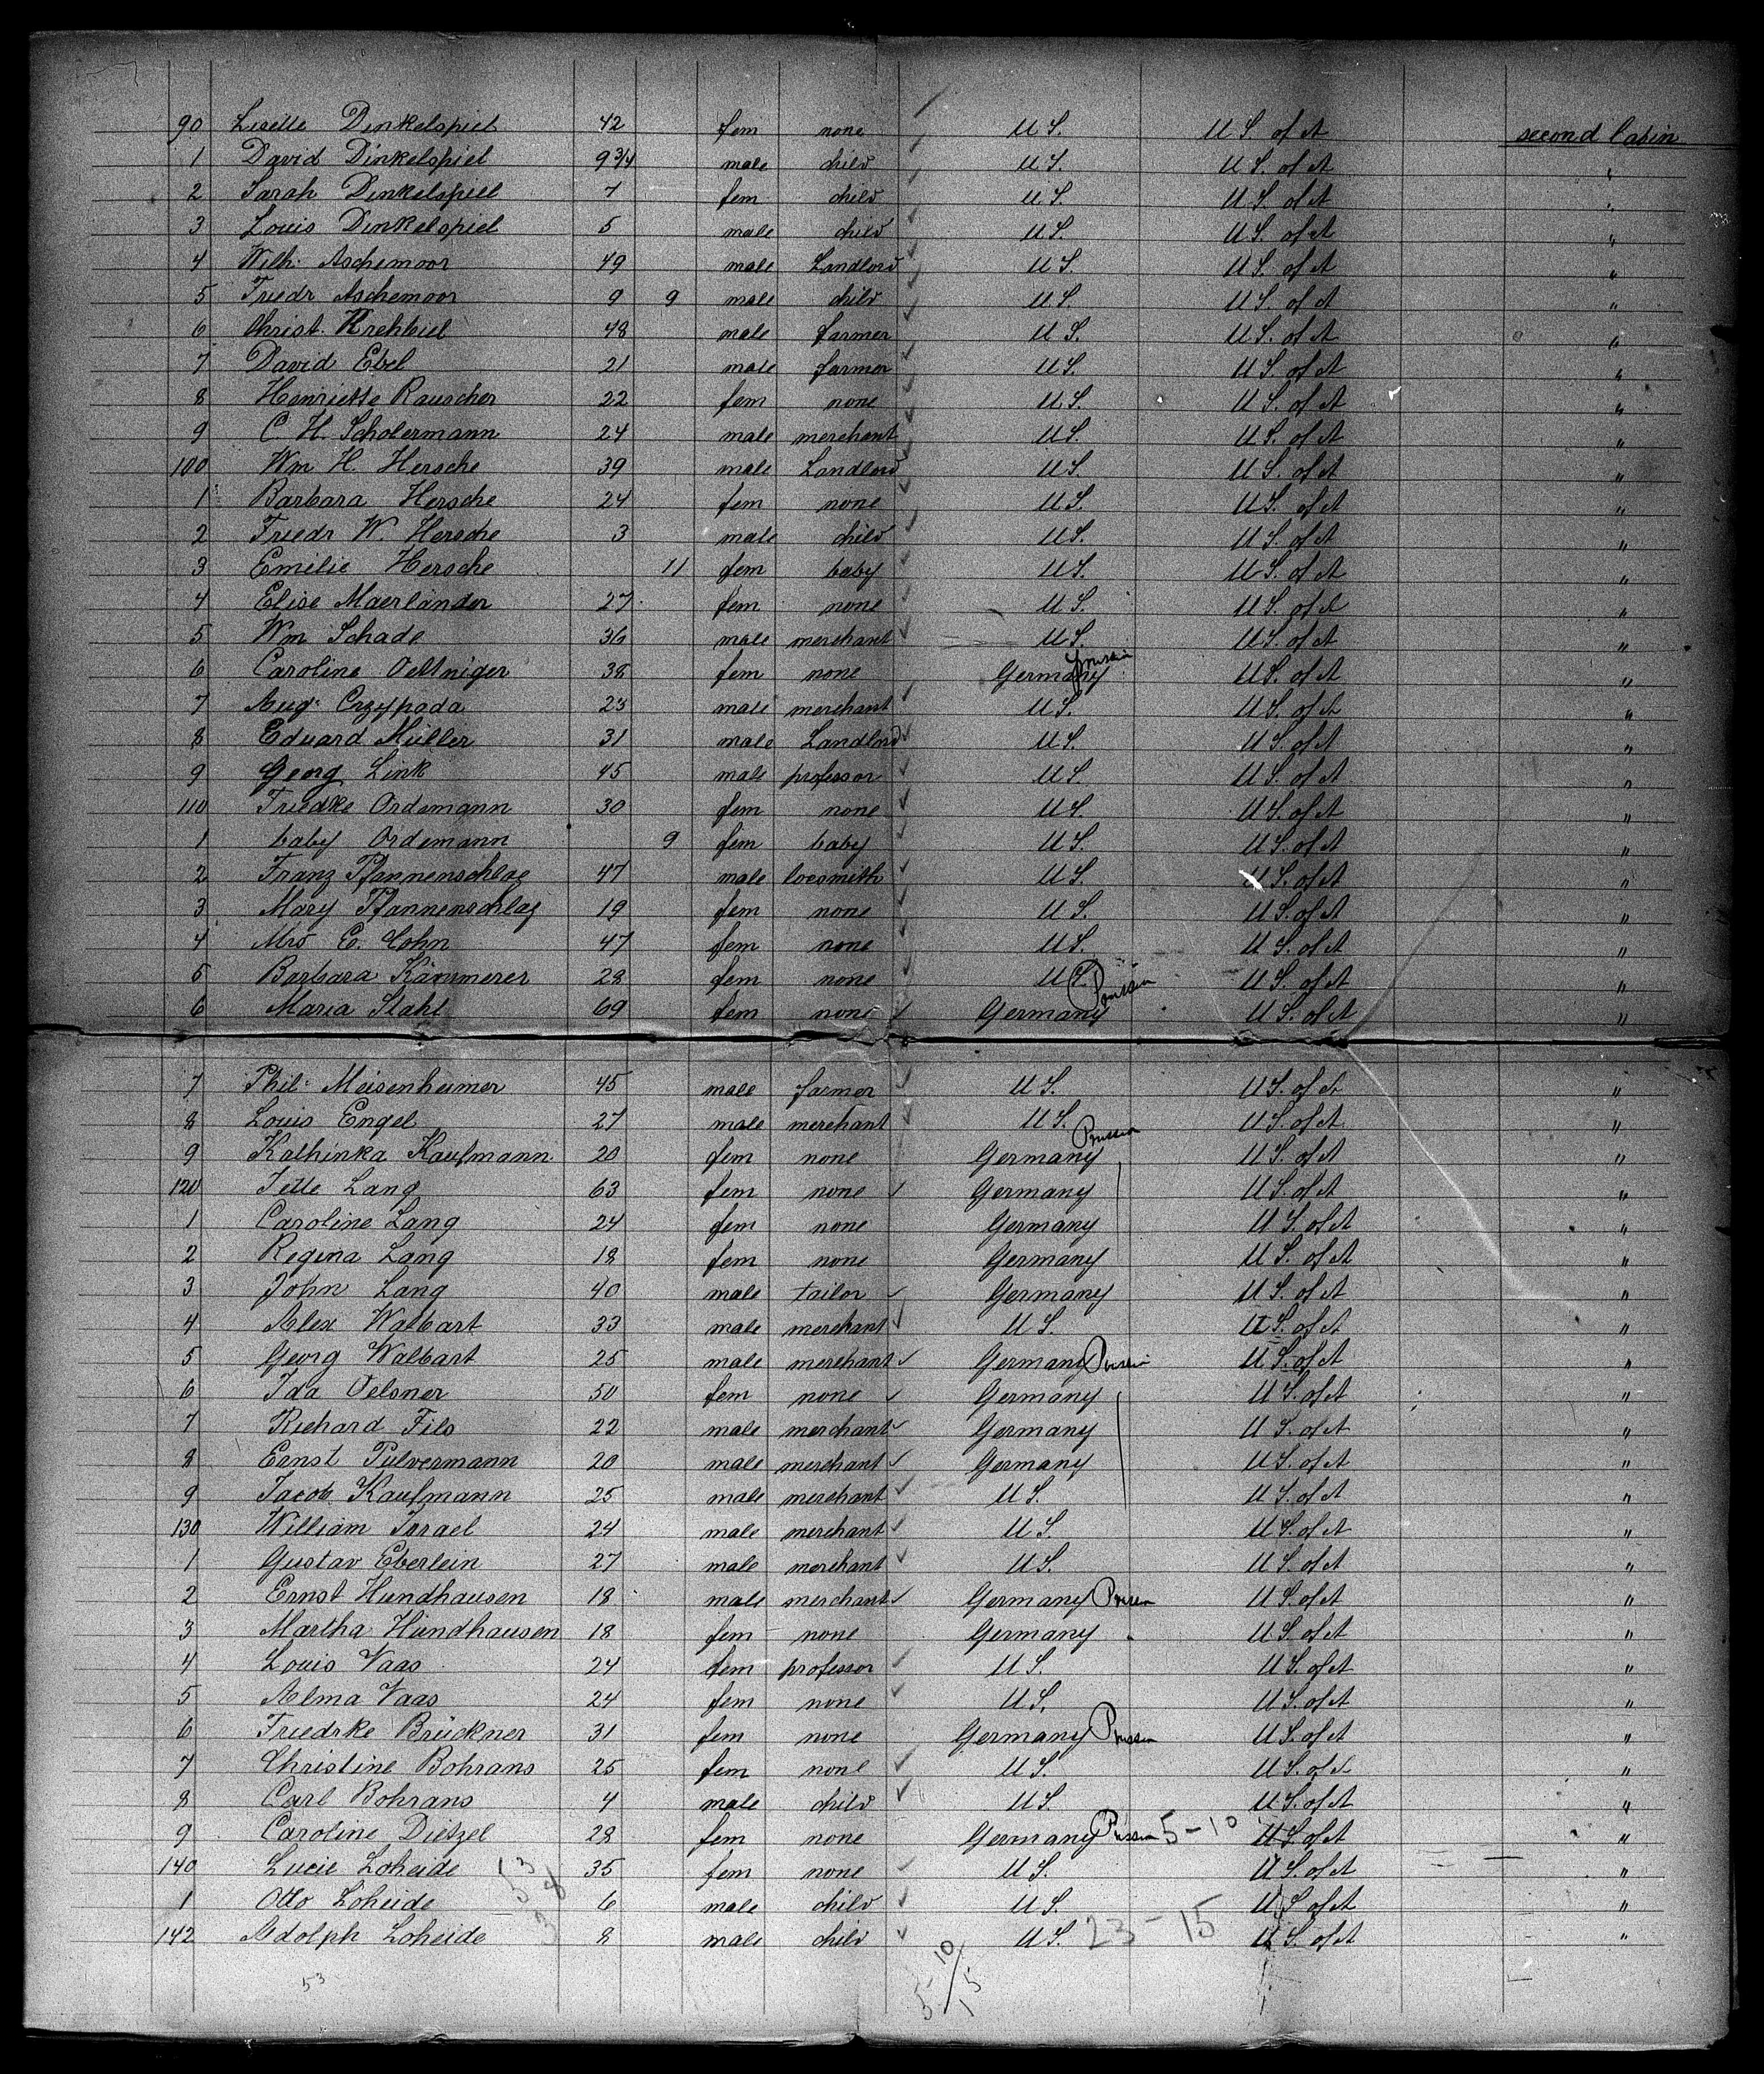 90 Liselle Dinkelspiel 42 fem none U S. U S of A second Cabin
1 David Dinkelspiel 9 3/4 male child U S. U S. of A "
2 Sarah Dinkelspiel 7 fem child U S. U S. of A "
3 Louis Dinkelspiel 5 male child U S. U S. of A "
4 Wilh. Aschemoor 49 male Landlord U S. U S. of A "
5 Friedr Aschemoor 9 9 male child U S. U S. of A "
6 Christ. Krehbiel 48 male farmer U S. U S. of A "
7 David Ebel 21 male farmer U S. U S. of A "
8 Henriette Rauscher 22 fem none U S. U S. of A "
9 C. H. Scholermann 24 male merchant U S. U S. of A "
100 Wm H. Hersche 39 male Landlord U S. U S. of A "
1 Barbara Hersche 24 fem none U S. U S. of A "
2 Friedr W. Hersche 3 male child U S. U S. of A "
3 Emilie Hersche 11 fem baby U S. U S. of A "
4 Elise Maerländer 27 fem none U S. U S. of A "
5 Wm Schade 36 male merchant U S. U S. of A "
6 Caroline Oeltniger 38 fem none Germany Prussia U S. of A "
7 Aug. Czzypoda 23 male merchant U S. U S. of A "
8 Eduard Müller 31 male Landlord U S. U S. of A "
9 Georg Link 45 male professor U S. U S. of A "
110 Friedke Ordemann 30 fem none U S. U S. of A "
1 baby Ordemann 9 fem baby U S. U S. of A "
2 Franz Pfannenschlag 47 male locsmith U S. U S. of A "
3 Mary Pfannenschlag 19 fem none U S. U S. of A "
4 Mrs E. Cohn 47 fem none U S. U S. of A "
5 Barbara Kämmerer 28 fem none U S. U S. of A "
6 Maria Stahl 69 fem none Germany Prussia U S. of A "
7 Phil. Meisenheimer 45 male farmer U S. U S. of A "
8 Louis Engel 27 male merchant U S. U S. of A "
9 Kathinka Kaufmann 20 fem none Germany Prussia U S. of A "
120 Jette Lang 63 fem none Germany U S. of A "
1 Caroline Lang 24 fem none Germany U S. of A "
2 Regina Lang 18 fem none Germany U S. of A "
3 John Lang 40 male tailor Germany U S. of A "
4 Alex Walbart 33 male merchant U S. U S. of A "
5 Georg Walbart 25 male merchant Germany Prussia U S. of A "
6 Ida Oelsner 50 fem none Germany U S. of A "
7 Richard Fils 22 male merchant Germany U S. of A "
8 Ernst Pulvermann 20 male merchant Germany U S. of A "
9 Jacob Kaufmann 25 male merchant U S. U S. of A "
130 William Israel 24 male merchant U S. U S. of A "
1 Gustav Eberlein 27 male merchant U S. U S. of A "
2 Ernst Hundhausen 18 male merchant Germany Prussia U S. of A "
3 Martha Hundhausen 18 fem none Germany U S. of A "
4 Louis Vaas 24 fem professor U S. U S. of A "
5 Alma Vaas 24 fem none U S. U S. of A "
6 Friedrke Brückner 31 fem none Germany Prussia U S. of A "
7 Christine Bohrans 25 fem none U S. U S. of A "
8 Carl Bohrans 4 male child U S. U S. of A "
9 Caroline Dietzel 28 fem none Germany Prussia 5-10 U S. of A "
140 Lucie Loheide 35 fem none U S. U S. of A "
1 Otto Loheide 6 male child U S. U S. of A "
142 Adolph Loheide 8 male child U S. 23-15 U S. of A "
53 5 10/15